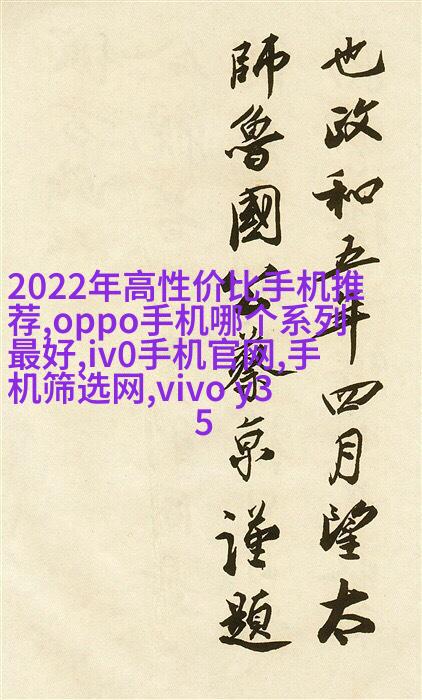 也政和五年四月望太
師魯國公蔡京謹題
2022年高性价比手机推
荐,oppo手机哪个系列
最好,iv0手机官网,手
机筛选网,vivo y3
5